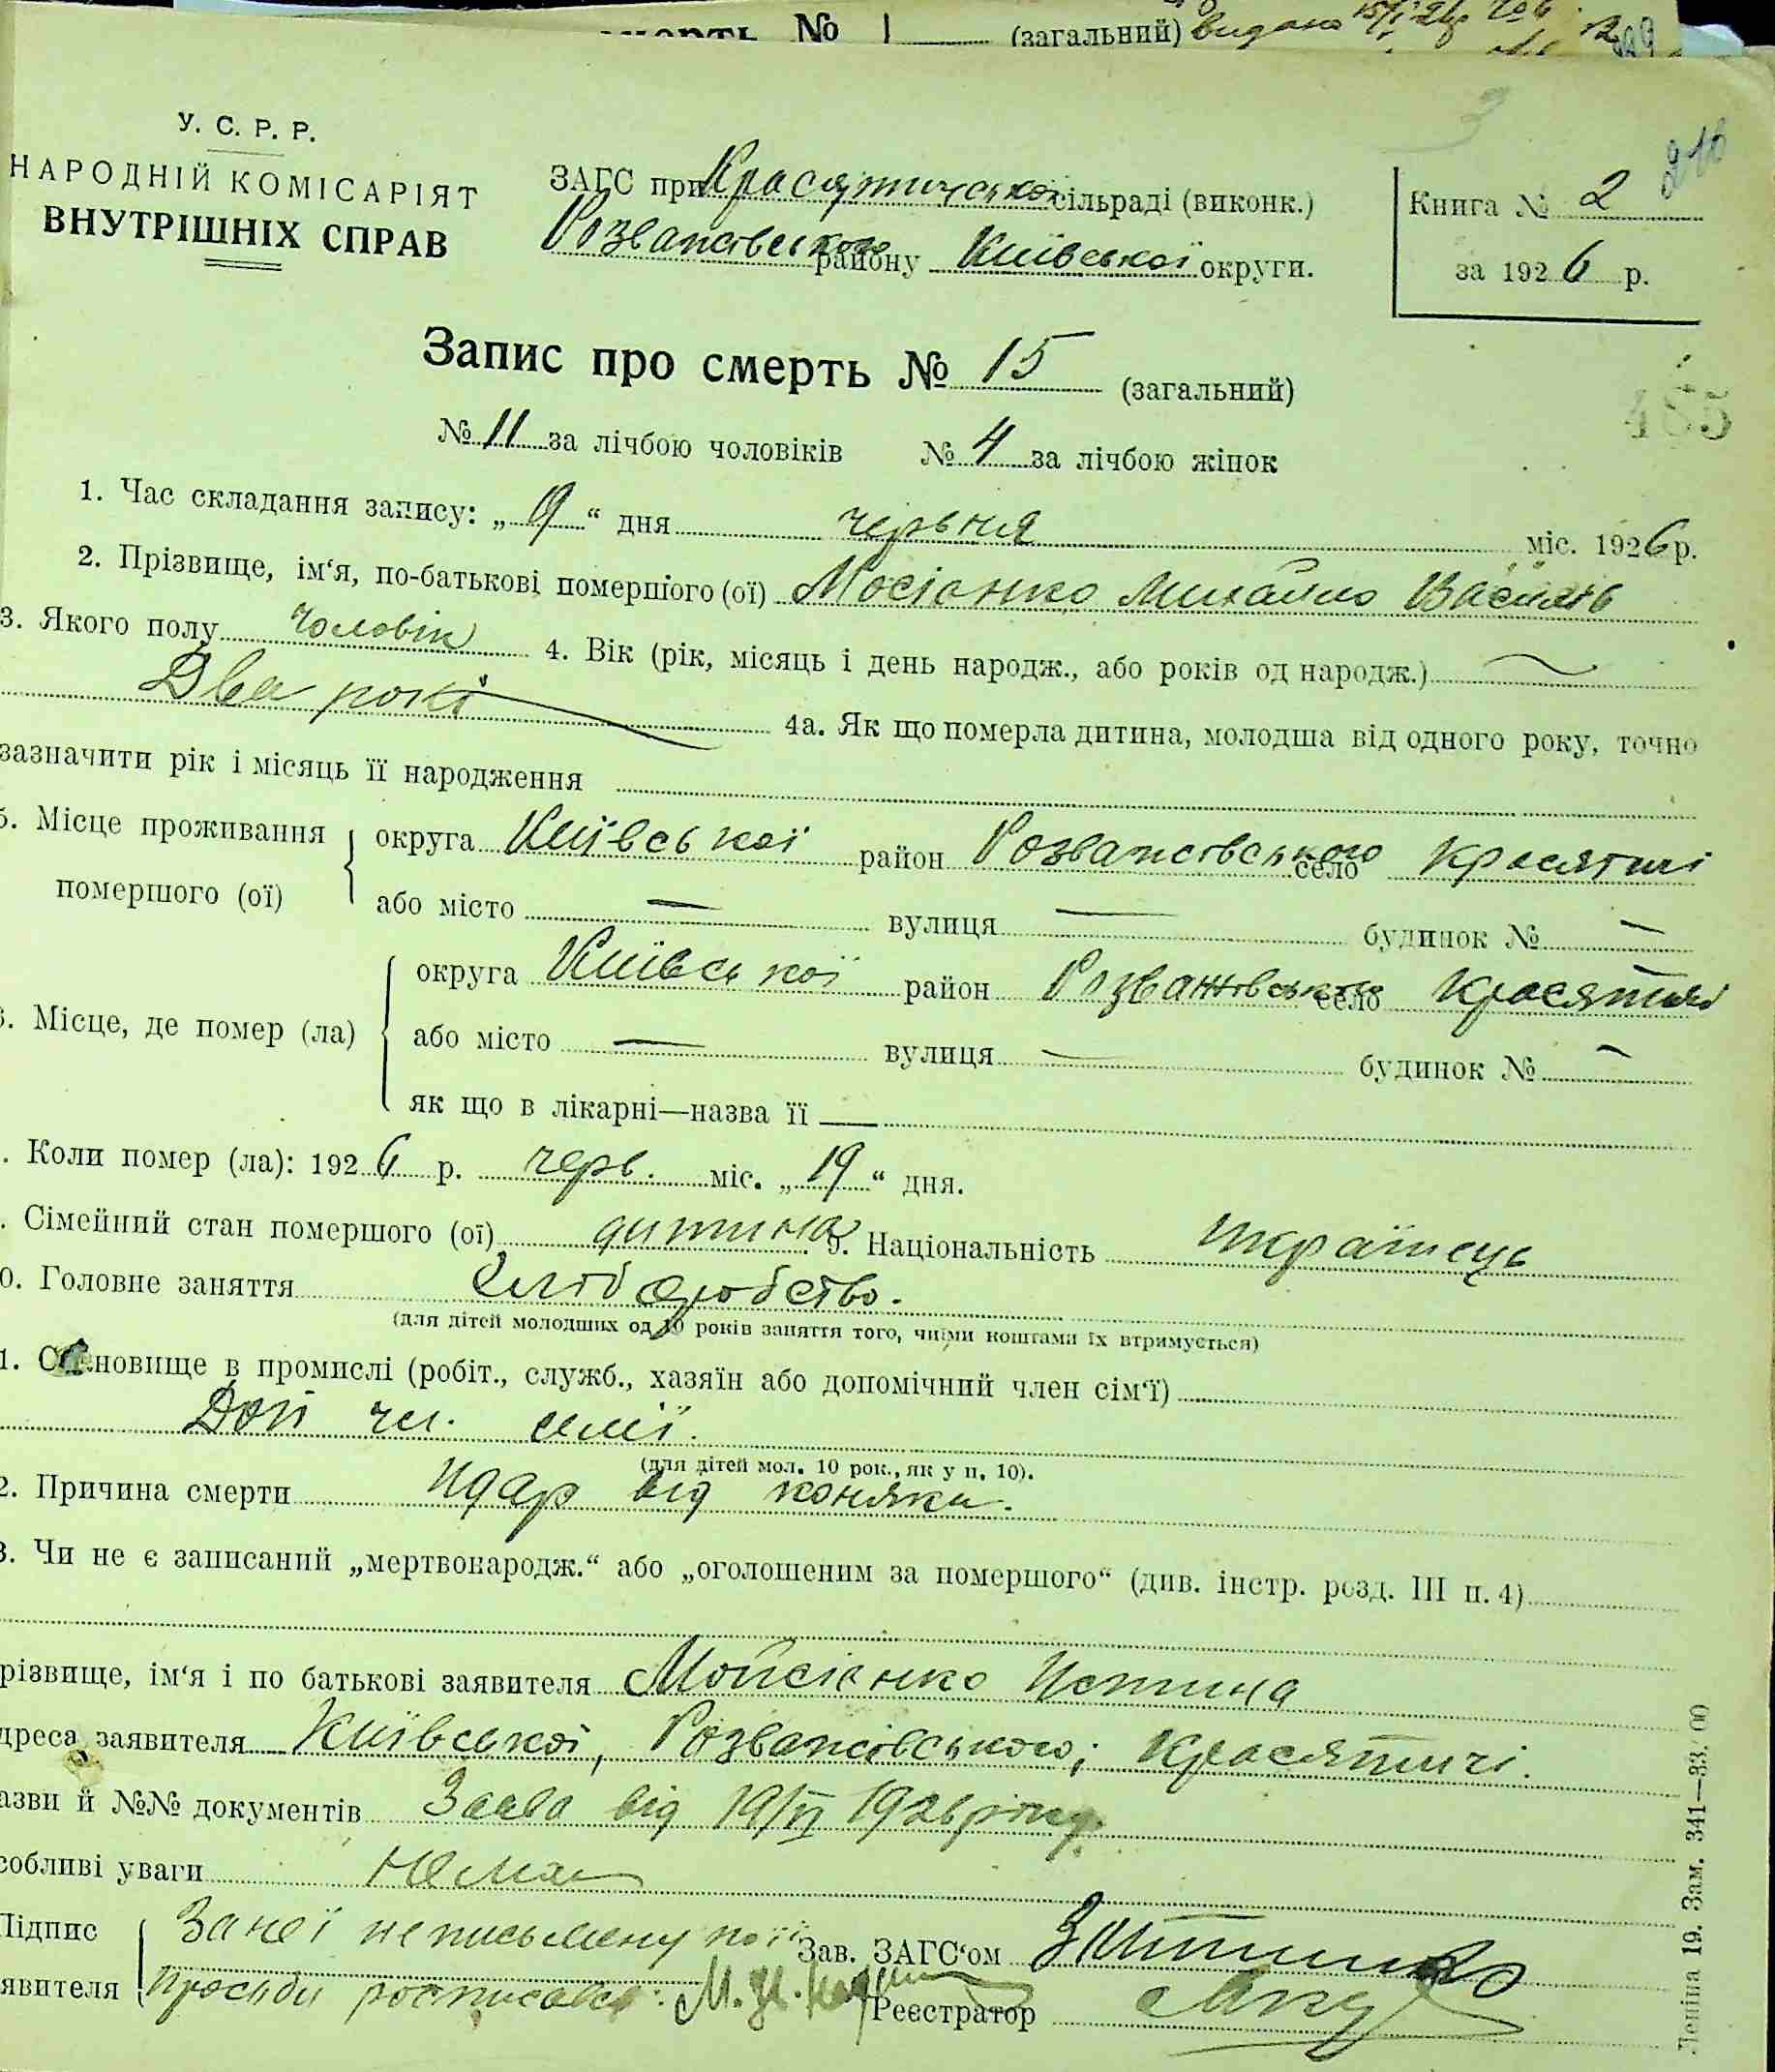 № 1 (загальний) видано
У. С. Р. Р.
НАРОДНІЙ КОМІСАРІЯТ
ВНУТРІШНІХ СПРАВ
ЗАГС при Красятичській сільраді (виконк.)
Розважівського району Київської округи.
Книга № 2
за 1926 р.
3
210
Запис про смерть № 15 (загальний)
485
№ 11 за лічбою чоловіків № 4 за лічбою жінок
1. Час складання запису: „ 19 “ дня червня міс. 1926 р.
2. Прізвище, ім‘я, по-батькові помершого (ої) Мосіэнко Михайло Василів
3. Якого полу чоловік 4. Вік (рік, місяць і день народж., або років од народж.)
Два рокі 4а. Як що померла дитина, молодша від одного року, точно
зазначити рік і місяць її народження
5. Місце проживання помершого (ої) округа Київської район Розважівського село Красятичі
або місто — вулиця — будинок № —
. Місце, де помер (ла) округа Київської район Розважівського село Красятичі
або місто — вулиця — будинок № —
як що в лікарні—назва її —
. Коли помер (ла): 1926 р. черв. міс. „ 19 “ дня.
. Сімейний стан помершого (ої) дитина 9. Національність Українець
0. Головне заняття Хліборобство.
(для дітей молодших од 10 років заняття того, чиїми коштами їх втримується)
1. Становище в промислі (робіт., служб., хазяїн або допомічний член сім‘ї)
Доп чл. семї.
(для дітей мол. 10 рок., як у п. 10).
2. Причина смерти Удар від коняки.
3. Чи не є записаний „мертвонародж.“ або „оголошеним за помершого“ (див. інстр. розд. III п. 4)
різвище, ім‘я і по батькові заявителя Мойсіэнко Устина
дреса заявителя Київської, Розважівського; Красятичі.
азви й №№ документів Заява від 19/VI 1926 року.
собливі уваги Немає
Підпис явителя За неї неписьмену по її Зав. ЗАГС‘ом
просьби росписався: М. Реєстратор
Леніна 19. Зам. 341—33.00